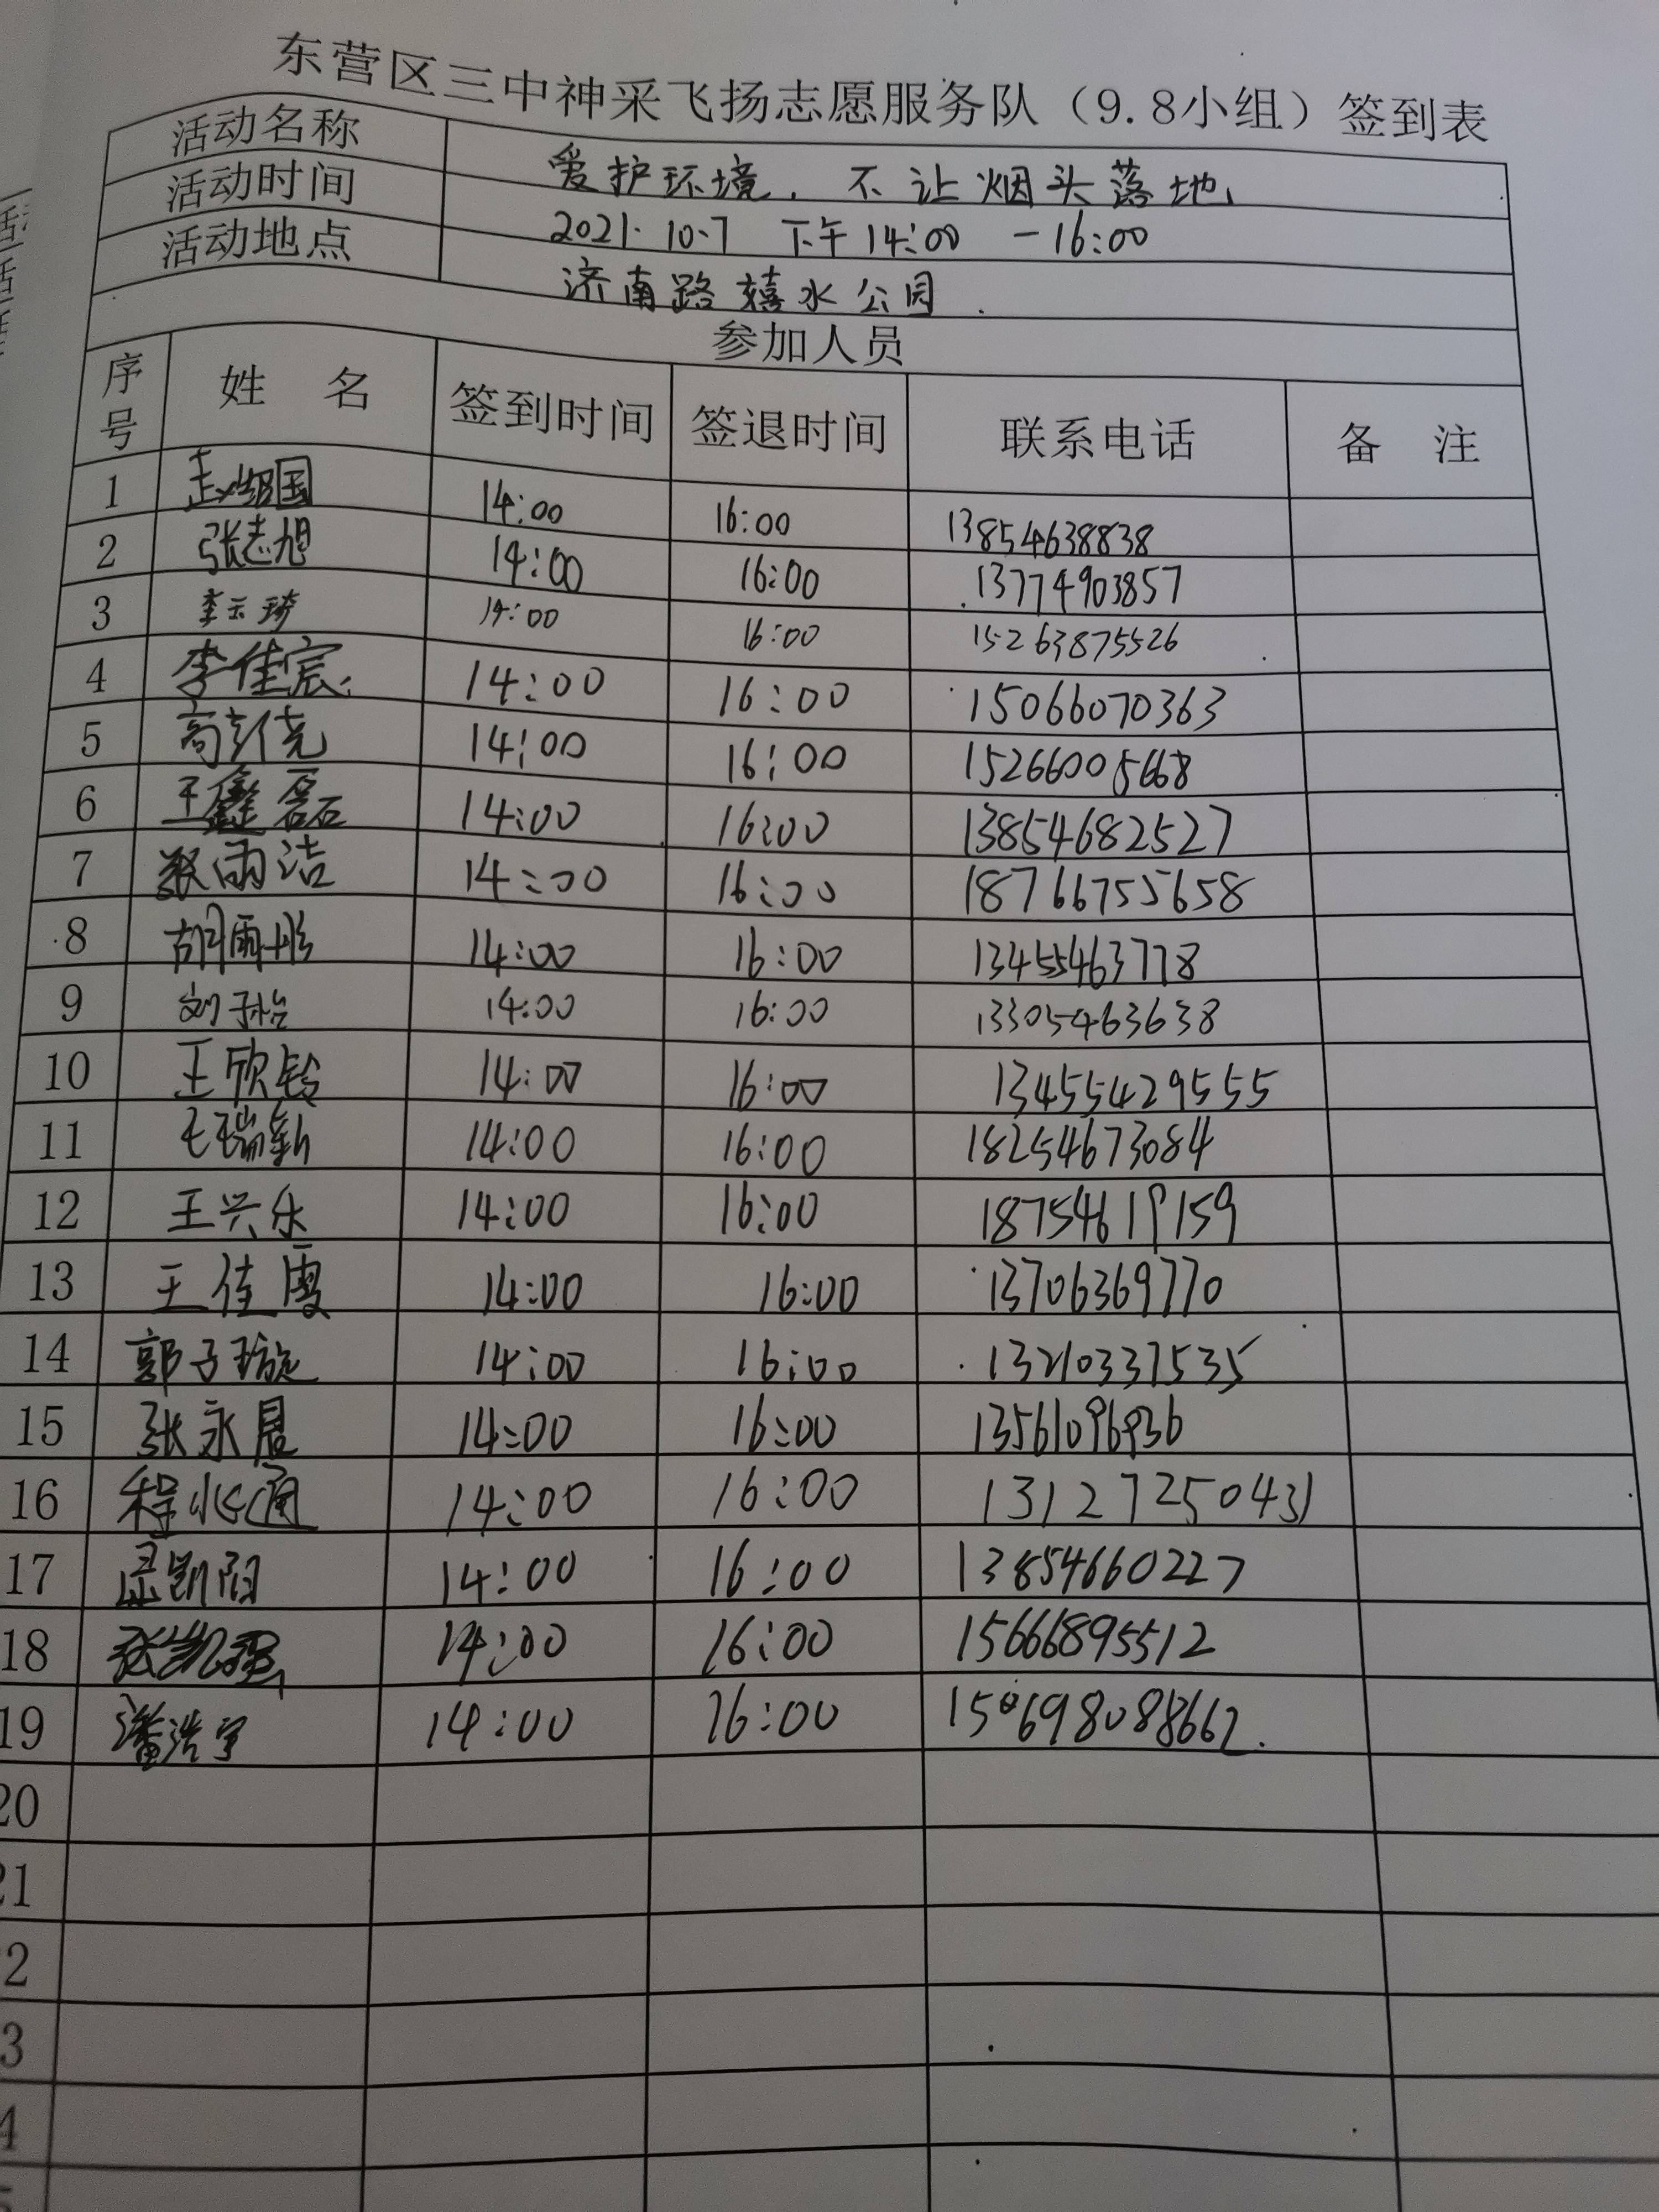 东营区三中神采飞扬志愿服务队（9.8小组）签到表
活动名称 爱护环境，不让烟头落地
活动时间 2021.10.7 下午14:00-16:00
活动地点 济南路嬉水公园.
参加人员
序号 姓名 签到时间 签退时间 联系电话 备注
1 14:00 16:00 13854638838
2 张志旭 14:00 16:00 13774903857
3 李云琦 14:00 16:00 15263875526
4 李佳宸 14:00 16:00 15066070363
5 高 14:00 16:00 15266005668
6 王鑫磊 14:00 16:00 13854682527
7 张雨洁 14:00 16:00 18766755658
8 胡雨彤 14:00 16:00 13455463778
9 刘子怡 14:00 16:00 13305463638
10 王欣铃 14:00 16:00 13455429555
11 王瑞新 14:00 16:00 18254673084
12 王兴乐 14:00 16:00 18754619159
13 王佳霞 14:00 16:00 13706369770
14 郭子璇 14:00 16:00 13210337535
15 张永晨 14:00 16:00 13561096936
16 程 14:00 16:00 13127250431
17 14:00 16:00 13854660227
18 14:00 16:00 15666895512
19 潘浩宇 14:00 16:00
20